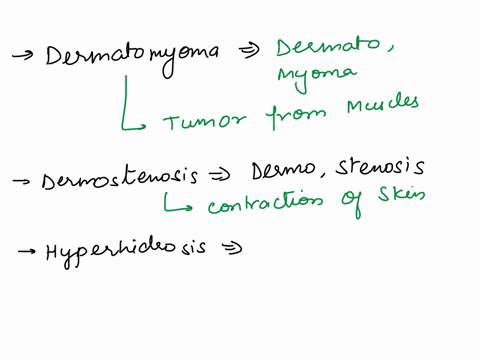 → Dermatomyoma ⇒ Dermato,
Myoma
Tumor from Muscles
→ Dermostenosis ⇒ Dermo, Stenosis
contraction of Skin
→ Hyperhidrosis ⇒